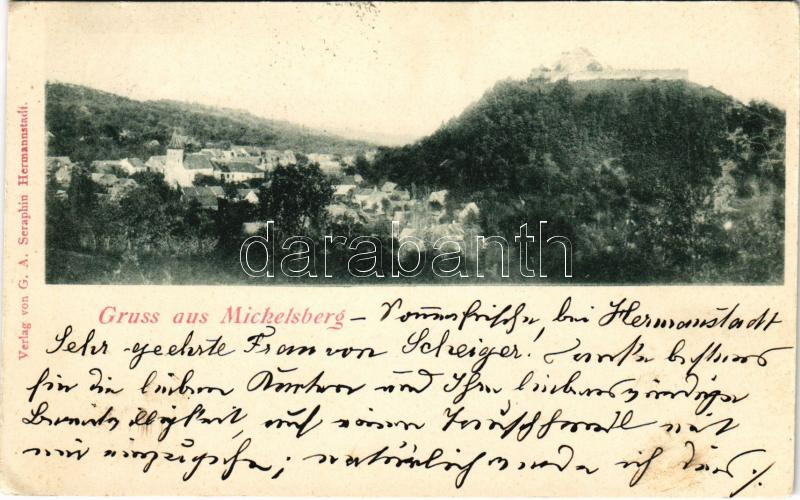 Verlag von G. A. Seraphin Hermannstadt.
darabanth
Gruss aus Michelsberg – Sommerfrische, bei Hermannstadt
Sehr geehrte Frau von Scheiger! Danke bestens
für die lieben Karten und Ihre liebenswürdige
auf einen Tauschhandl mit
mir einzugehn; natürlich werde ich das ./.